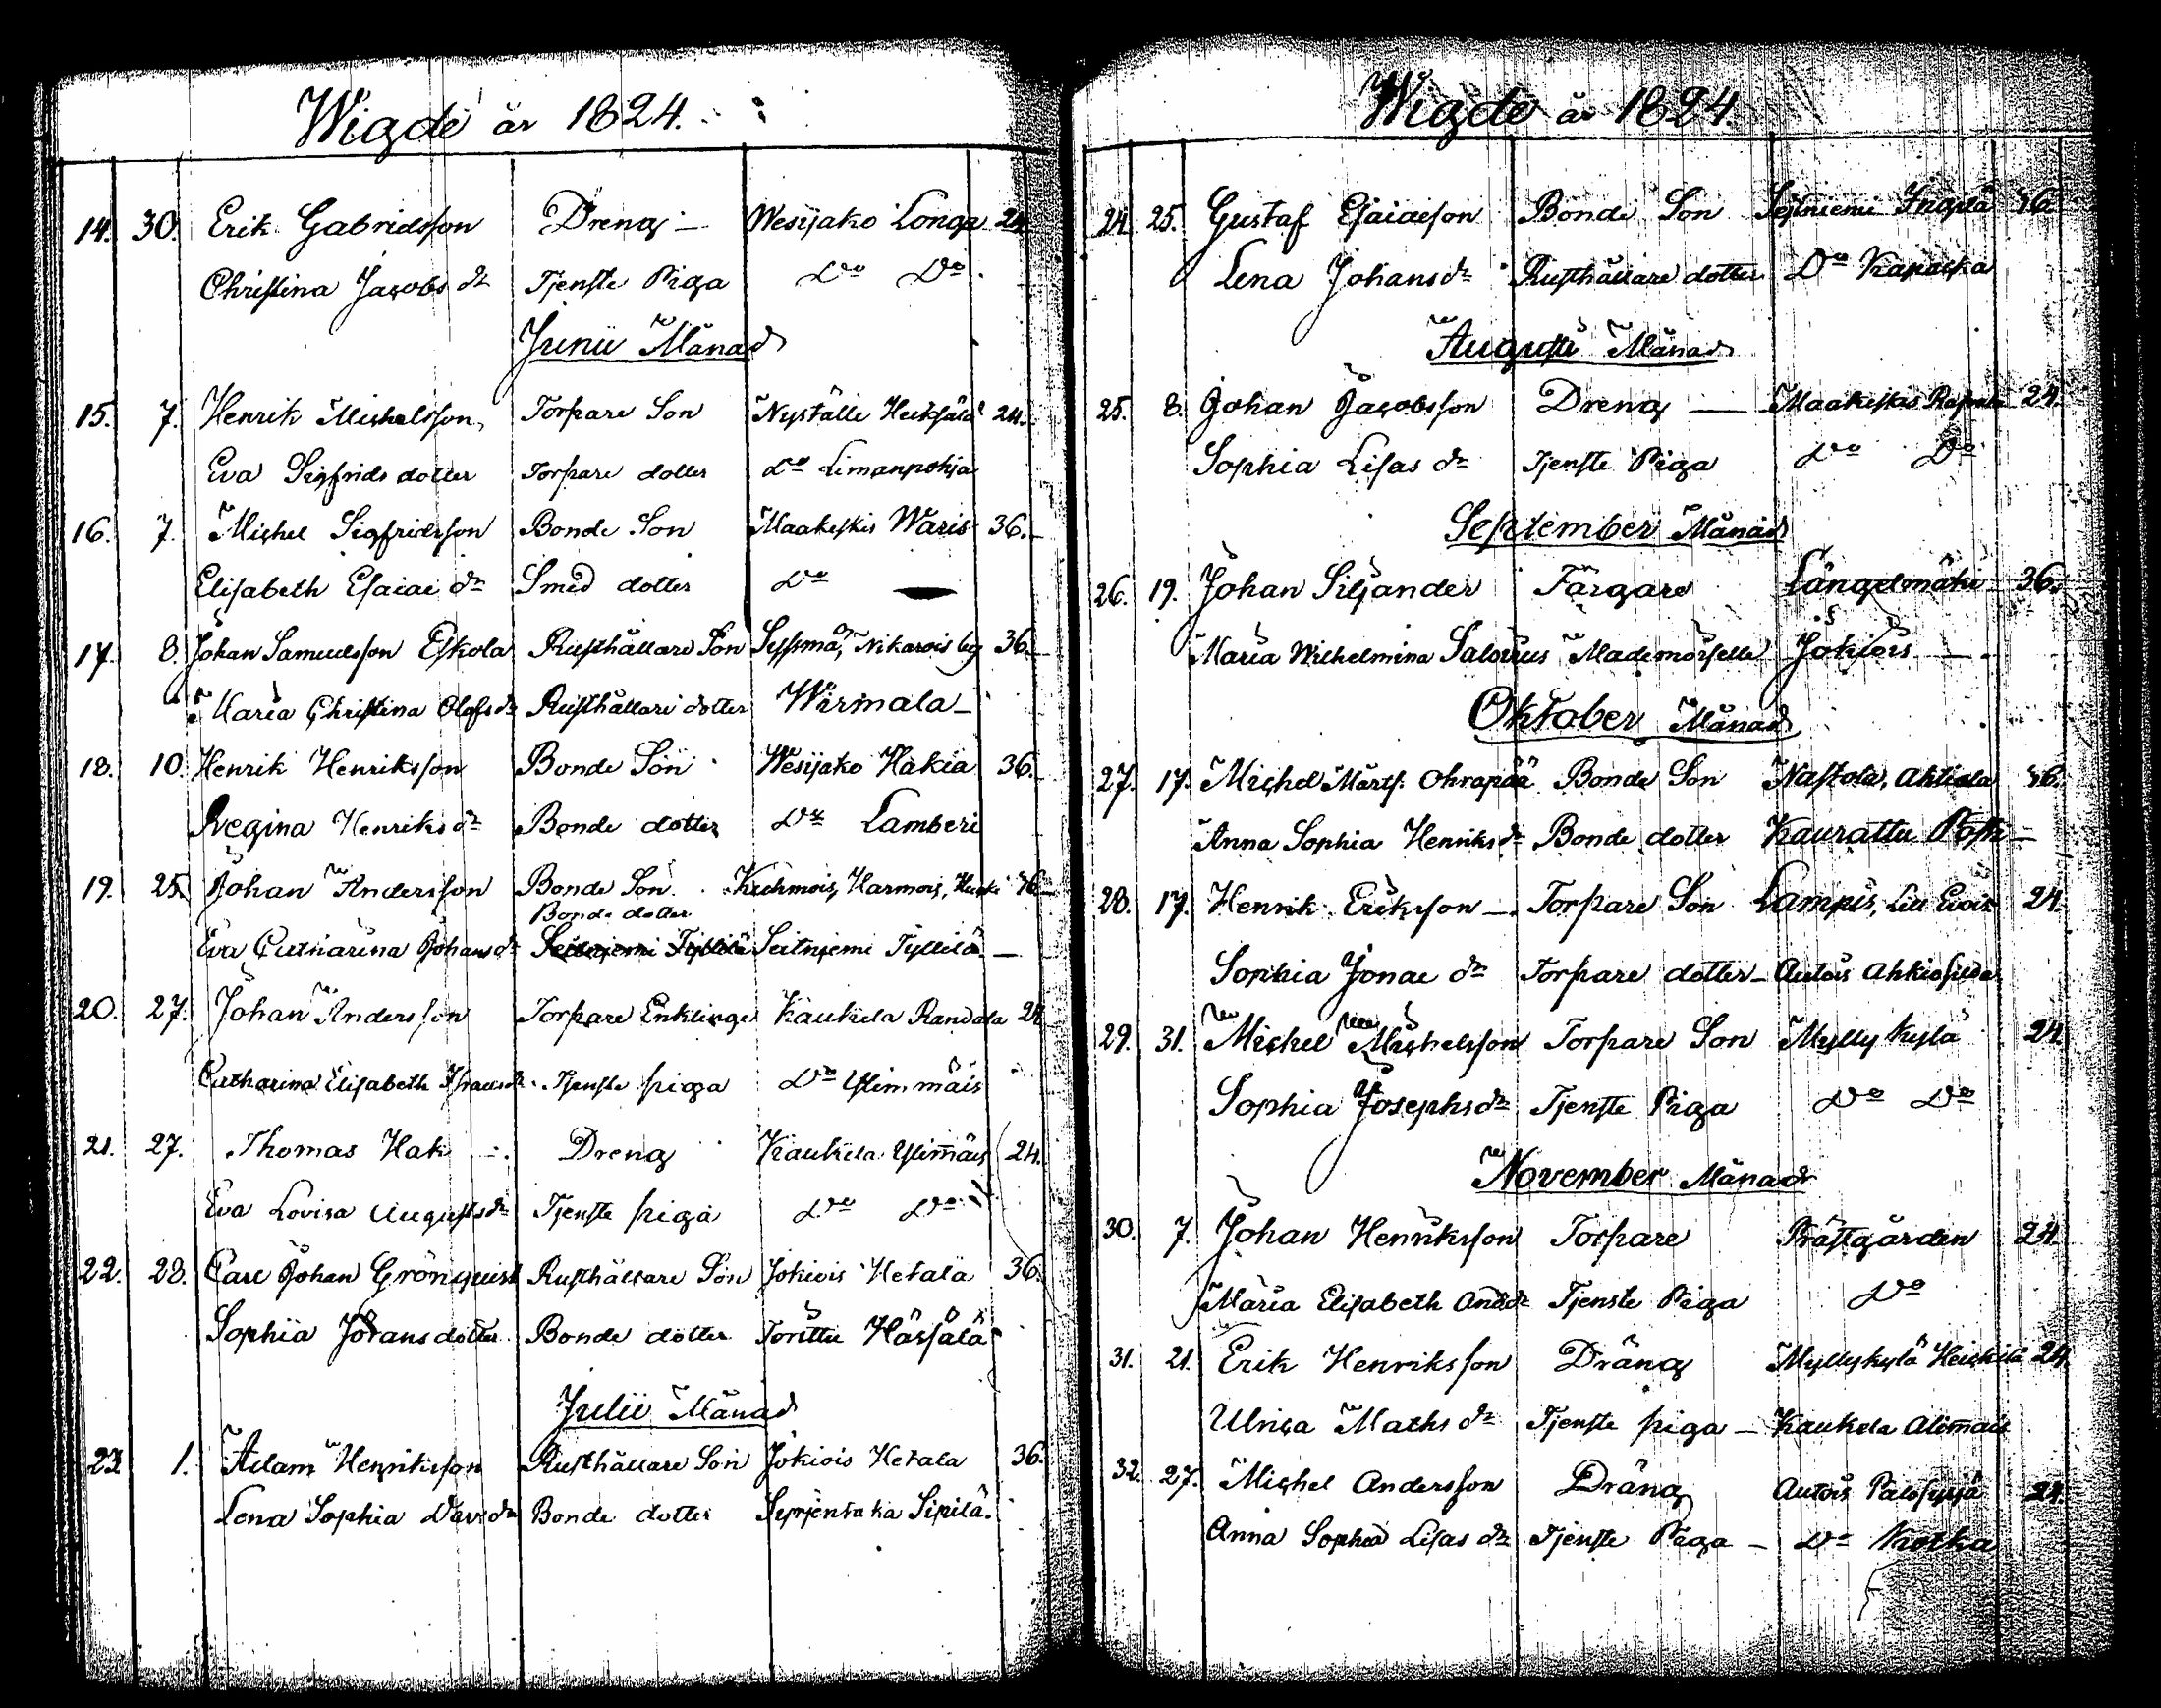 Wigde år 1824.
14. 30. Erik Gabrielsson Dreng — Wesijako Longa 24
Christina Jacobs dr Tjenste Piga Do Do
Junii Månad
15. 7. Henrik Michelsson Torpare Son Nyställe Heikjälä 24.
Eva Sigfrids dotter Torpare dotter Do Limanpohja
16. 7. Michel Sigfridsson Bonde Son Maakeskis Waris 36.
Elisabeth Esaiae dr Smed dotter Do —
17. 8. Johan Samuelsson Eskola Rusthållare Son Syssmä, Nikarois by 36.
Maria Christina Olofs dr Rusthållare dotter Wirmala
18. 10. Henrik Henriksson Bonde Son Wesijako Hakia 36.
Regina Henriks dr Bonde dotter Do Lamberi
19. 25. Johan Andersson Bonde Son. Kuhmois, Harmois, 36
Bonde dotter
Eva Catharina Johans dr Seitniemi Tyllilä Seitniemi Tyllilä —
20. 27. Johan Andersson Torpare Enklinge Kaukela Randala 24
Catharina Elisabeth dr Tjenste piga Do Ylimmäis
21. 27. Thomas Hak Dreng Kaukela Ylimäis 24.
Eva Lovisa Augusts dr Tjenste piga Do Do
22. 28. Carl Johan Grönquist Rusthållare Son Jokiois Hetala 36.
Sophia Jörans dotter Bonde dotter Torittu Hässälä
Julii Månad
23 1. Adam Henriksson Rusthållare Son Jokiois Hetala 36.
Lena Sophia Davids dr Bonde dotter Syrjentaka Sipilä.
Wigde år 1824.
24 25. Gustaf Esaiaeson Bonde Son Seitniemi 36.
Lena Johans dr Rusthållare dotter Do
Augusti Månad
25. 8. Johan Jacobsson Dreng — Maakeskis 24.
Sophia Lisas dr Tjenste Piga Do Do
September Månad
26. 19. Johan Siljander Färgare Längelmäki 36.
Maria Wilhelmina Salovius Mademoiselle Jokiois —
Oktober Månad
27. 17. Michel Märts. Ohrapää Bonde Son Nastola, Ahtiala 36.
Anna Sophia Henriks dr Bonde dotter Kaurattu —
28. 17. Henrik Eriksson — Torpare Son Lampis, Lill Evois 24.
Sophia Jonae dr Torpare dotter — Autois
29. 31. Michel Michelsson Torpare Son Myllykylä 24.
Sophia Josephs dr Tjenste Piga Do Do
November Månad
30. 7. Johan Henriksson Torpare Prästgården 24.
Maria Elisabeth Ands dr Tjenste Piga Do
31. 21. Erik Henriksson Dräng Myllykylä Heickilä 24.
Ulrica Maths dr Tjenste piga — Kaukela Alimais
32. 27. Michel Andersson Dräng Autois 24.
Anna Sophia Lisas dr Tjenste Piga — Do Kotka